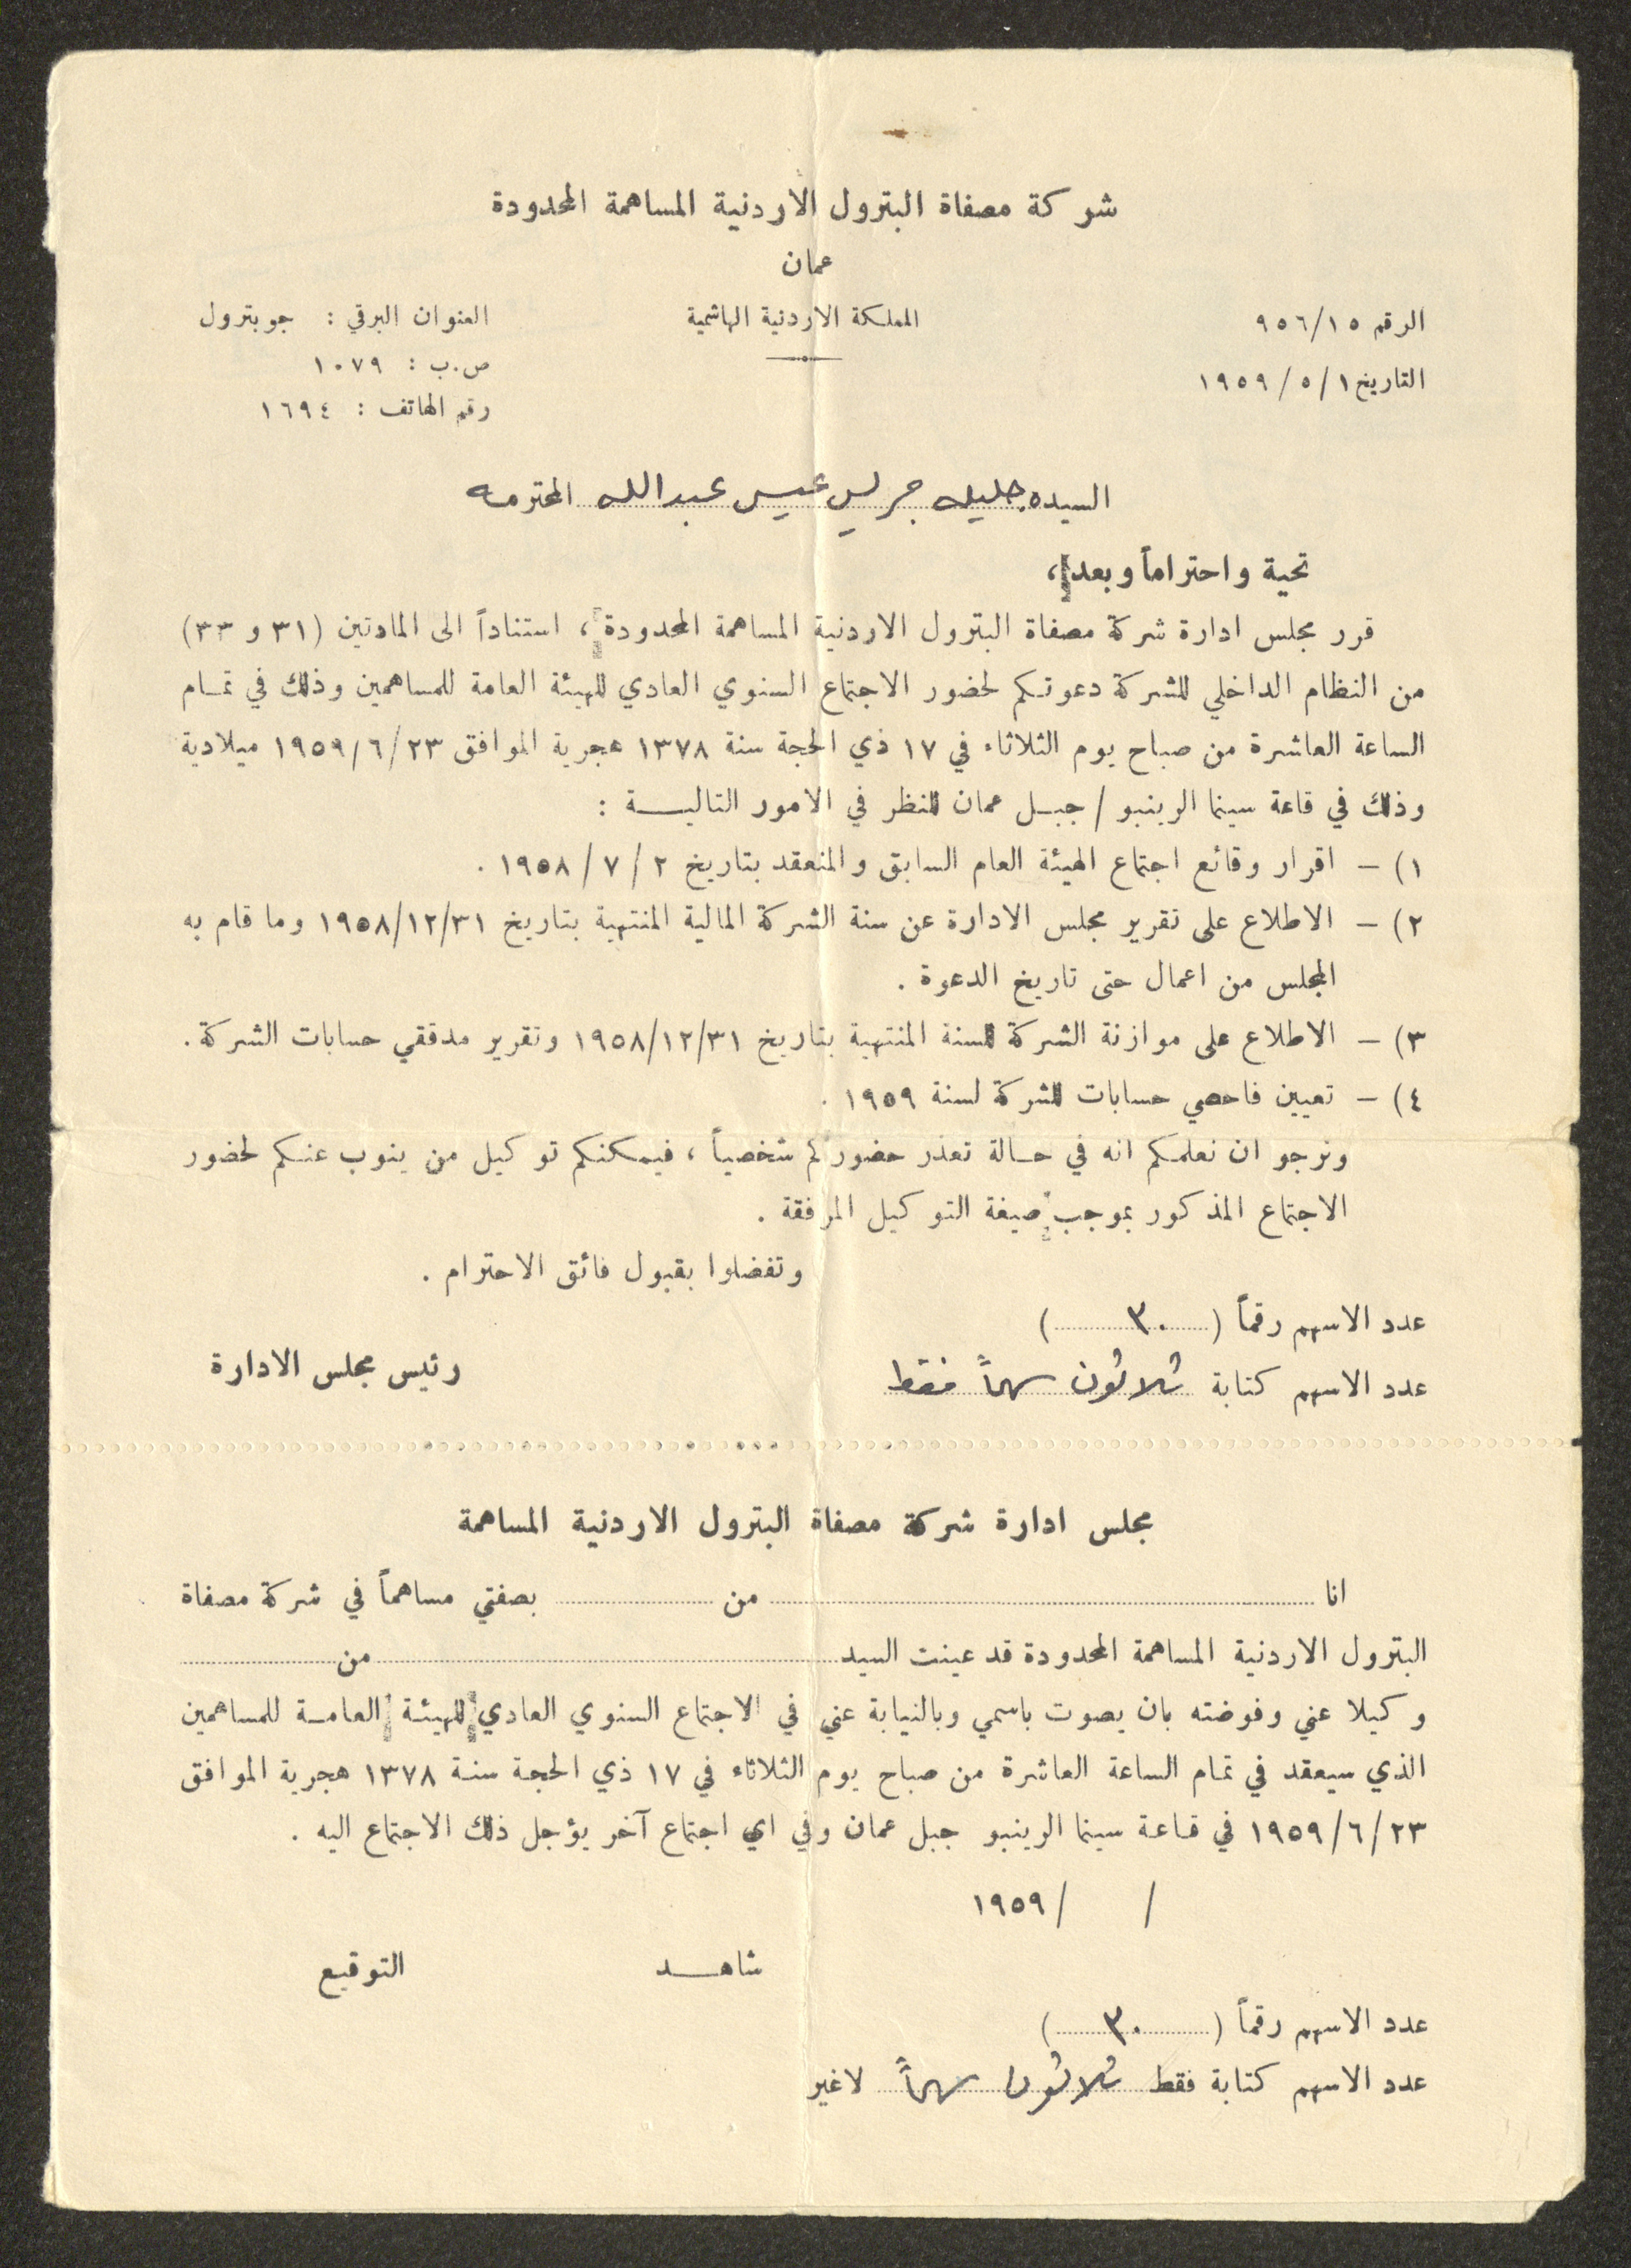 شركة مصفاة البترول الاردنية المساهمة المحدودة
عمان
المملكة الاردنية الهاشمية
الرقم ٩٥٦/١٥
التاريخ ١/ ٥ / ١٩٥٩
العنوان البرقي : جوبترول
ص.ب : ١٠٧٩
رقم الهاتف : ١٦٩٤
السيده جليله جريس عيسى عبدالله المحترمه
تحية واحتراماً وبعد ،
قرر مجلس ادارة شركة مصفاة البترول الاردنية المساهمة المحدودة ، استناداً الى المادتين (٣١ و ٣٣)
من النظام الداخلي للشركة دعوتكم لحضور الاجتماع السنوي العادي للهيئة العامة للمساهمين وذلك في تمام
الساعة العاشرة من صباح يوم الثلاثاء في ١٧ ذي الحجة سنة ١٣٧٨ هجرية الموافق ٢٣ /٦ /١٩٥٩ ميلادية
وذلك في قاعة سينما الرينبو / جبل عمان للنظر في الامور التالية :
١) – اقرار وقائع اجتماع الهيئة العام السابق والمنعقد بتاريخ ٢ / ٧ / ١٩٥٨ .
٢) – الاطلاع على تقرير مجلس الادارة عن سنة الشركة المالية المنتهية بتاريخ ١٩٥٨/١٢/٣١ وما قام به
المجلس من اعمال حتى تاريخ الدعوة .
٣) – الاطلاع على موازنة الشركة للسنة المنتهية بتاريخ ١٩٥٨/١٢/٣١ وتقرير مدققي حسابات الشركة .
٤) – تعيين فاحصي حسابات للشركة لسنة ١٩٥٩ .
ونرجو ان نعلمكم انه في حالة تعذر حضوركم شخصياً ، فيمكنكم توكيل من ينوب عنكم لحضور
الاجتماع المذكور بموجب صيغة التوكيل المرفقة .
وتفضلوا بقبول فائق الاحترام .
عدد الاسهم رقماً ( ٣٠ )
عدد الاسهم كتابة ثلاثون سهماً فقط
رئيس مجلس الادارة
مجلس ادارة شركة مصفاة البترول الاردنية المساهمة
انا من بصفتي مساهماً في شركة مصفاة
البترول الاردنية المساهمة المحدودة قد عينت السيد من
وكيلا عني وفوضته بان يصوت باسمي وبالنيابة عني في الاجتماع السنوي العادي للهيئة العامة للمساهمين
الذي سيعقد في تمام الساعة العاشرة من صباح يوم الثلاثاء في ١٧ ذي الحجة سنة ١٣٧٨ هجرية الموافق
٢٣ /٦ /١٩٥٩ في قاعة سينما الرينبو جبل عمان وفي اي اجتماع آخر يؤجل ذلك الاجتماع اليه .
/ / ١٩٥٩
شاهد التوقيع
عدد الاسهم رقماً ( ٣٠ )
عدد الاسهم كتابة فقط ثلاثون سهماً لاغير